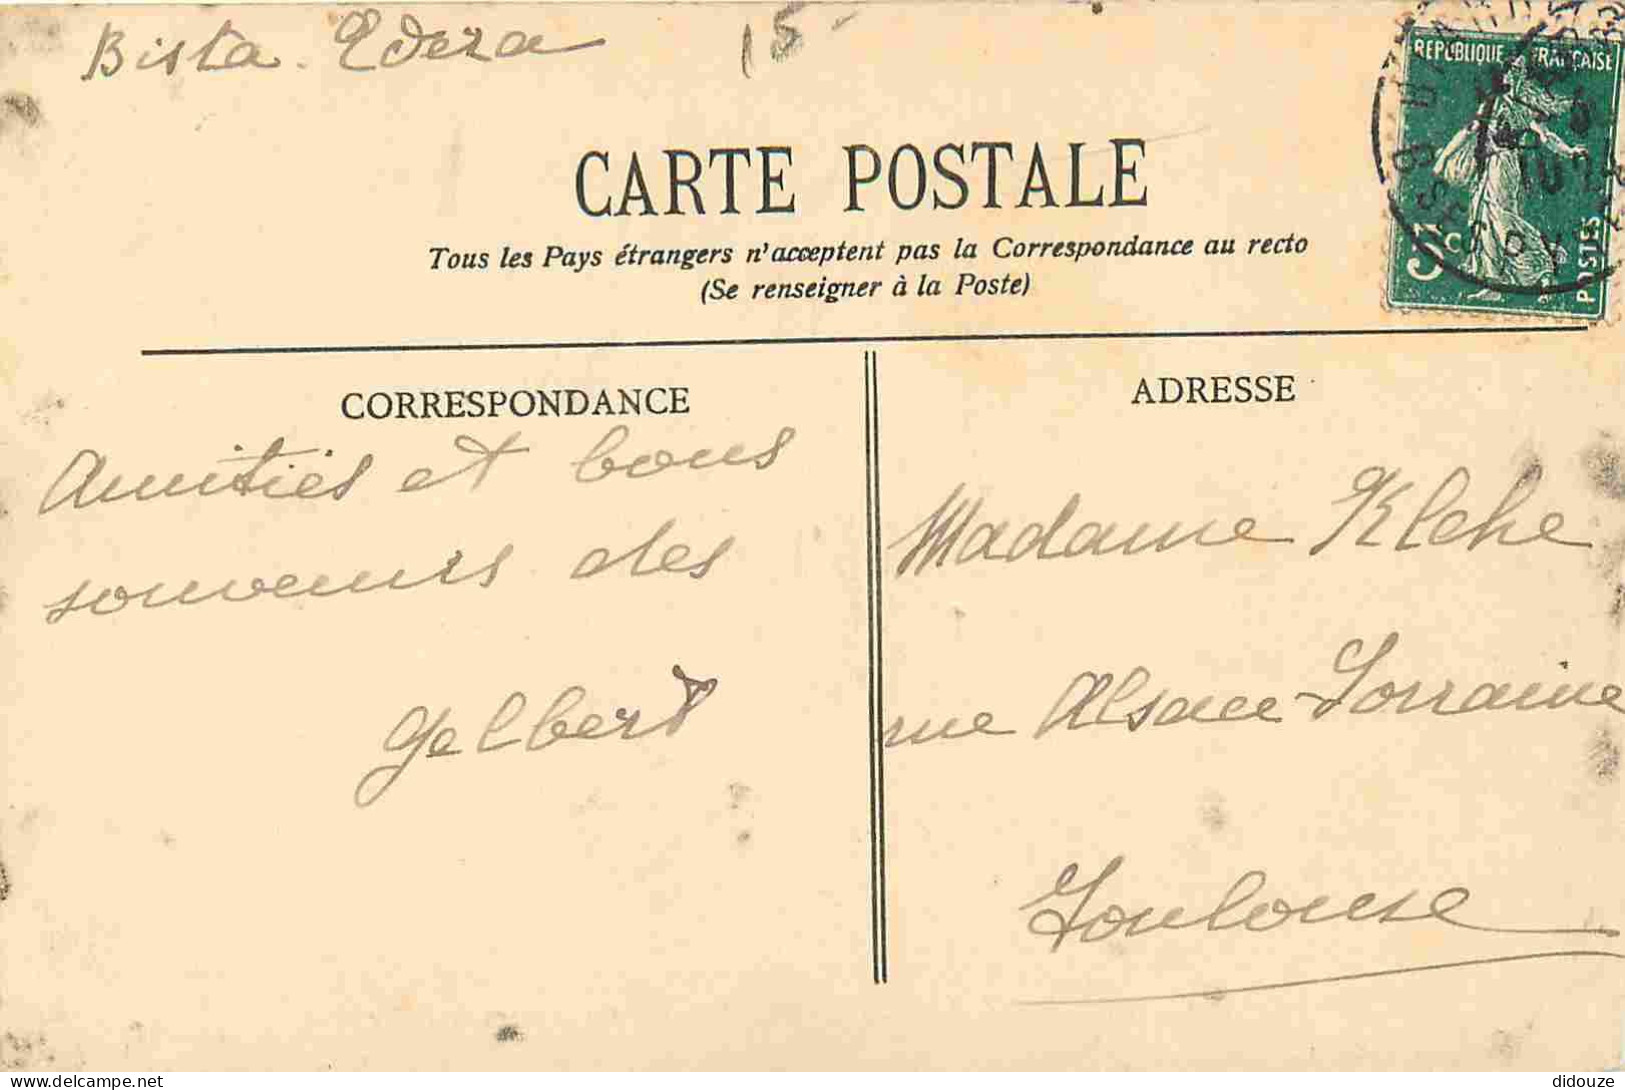 Bista. Edera
15-
RÉPUBLIQUE FRANÇAISE
5c
POSTES
CARTE POSTALE
Tous les Pays étrangers n'acceptent pas la Correspondance au recto
(Se renseigner à la Poste)
CORRESPONDANCE
Amitiés et bons
souvenirs des
Gelbert
ADRESSE
Madame Klehe
rue Alsace-Lorraine
Toulouse
delcampe.net
didouze